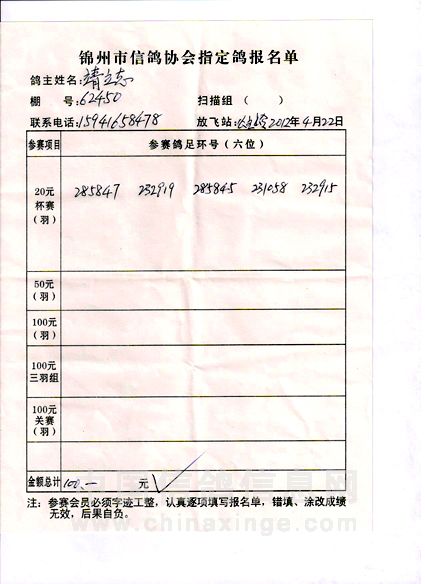 锦州市信鸽协会指定鸽报名单
鸽主姓名:靖立志
棚 号:62450 扫描组 （ ）
联系电话:15941658478 放飞站: 2012年4月22日
参赛项目 参赛鸽足环号（六位）
20元杯赛（羽） 285847 232919 285845 231058 232915
50元（羽）
100元（羽）
100元三羽组
100元关赛（羽）
金额总计 100.— 元
注：参赛会员必须字迹工整，认真逐项填写报名单，错填、涂改成绩
无效，后果自负。
中国信鸽信息网
www.chinaxinge.com